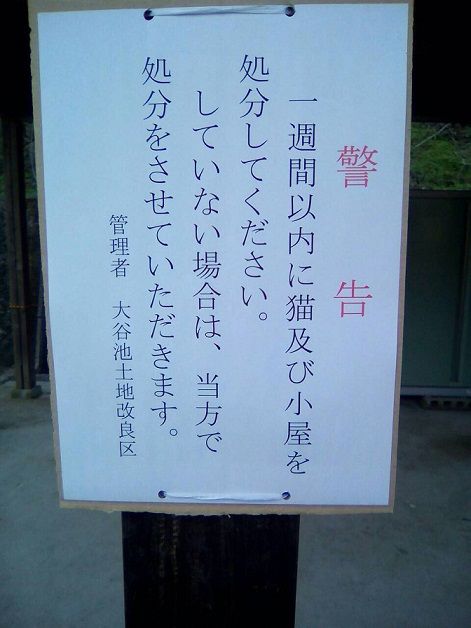 警告
一週間以内に猫及び小屋を
処分してください。
していない場合は、当方で
処分をさせていただきます。
管理者 大谷池土地改良区